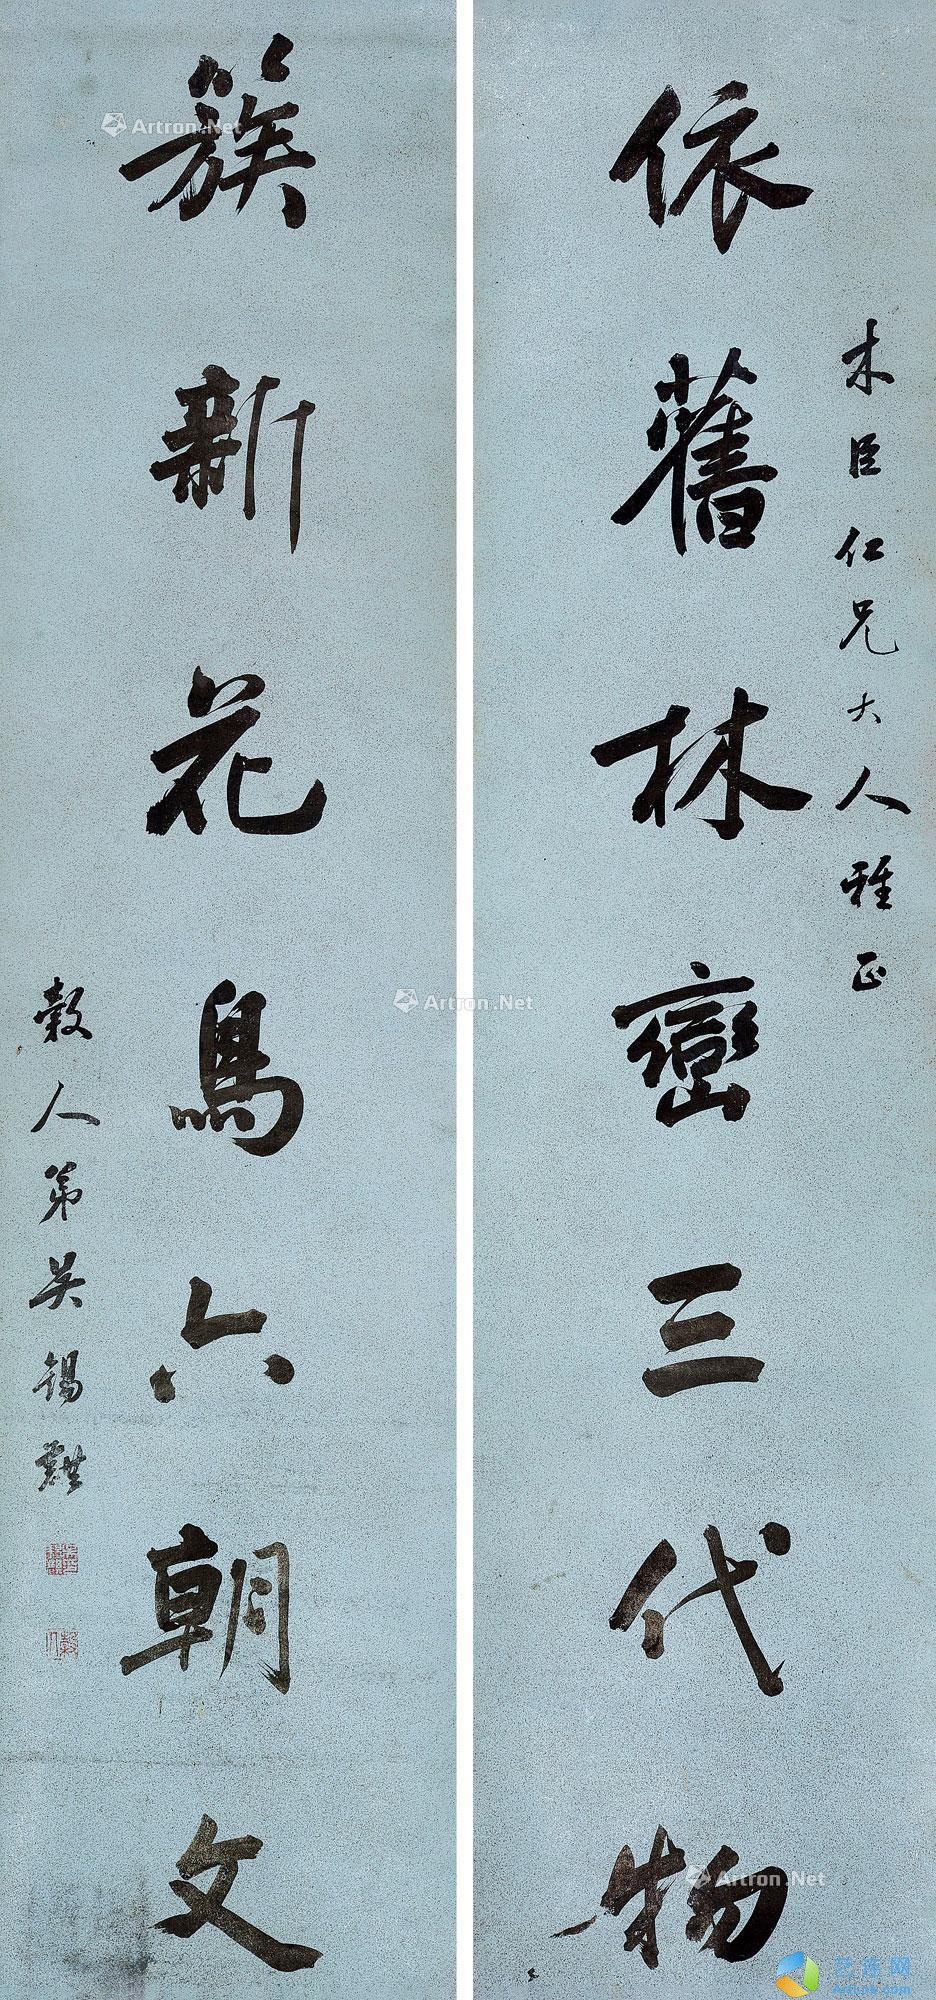 木臣仁兄大人雅正
依舊林巒三代物
簇新花鳥六朝文
穀人弟吴锡麒
Artron.Net
Artron.Net
Artron.Net
艺连网